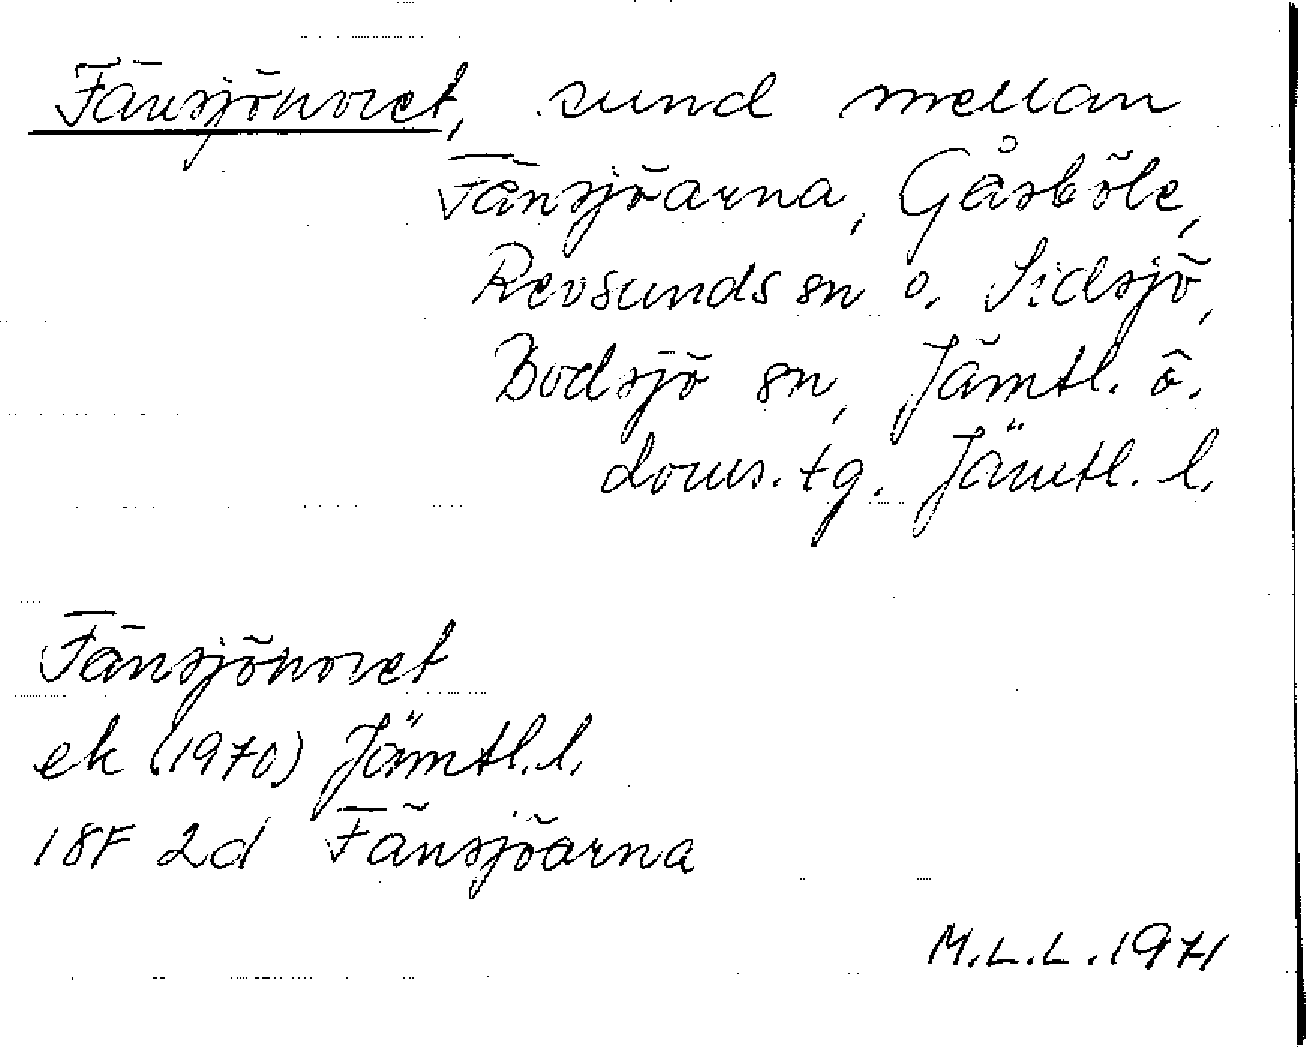 Fänsjönoret, sund mellan
Fänsjöarna, Gåsböle,
Revsunds sn o. Sidsjö,
Bodsjö sn, Jämtl. ö.
doms. tg. Jämtl. l.
Fänsjönoret
ek (1970) Jämtl. l.
18F 2d Fänsjöarna
M.L.L. 1971